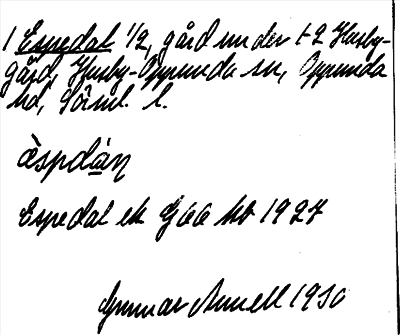 1 Espedal 1/2, gård under 1-2 Husby-
gård, Husby-Oppunda sn, Oppunda
hd, Söml. l.
èspdàn
Espedal ek G66 kb 1927
Gunnar Annell 1930